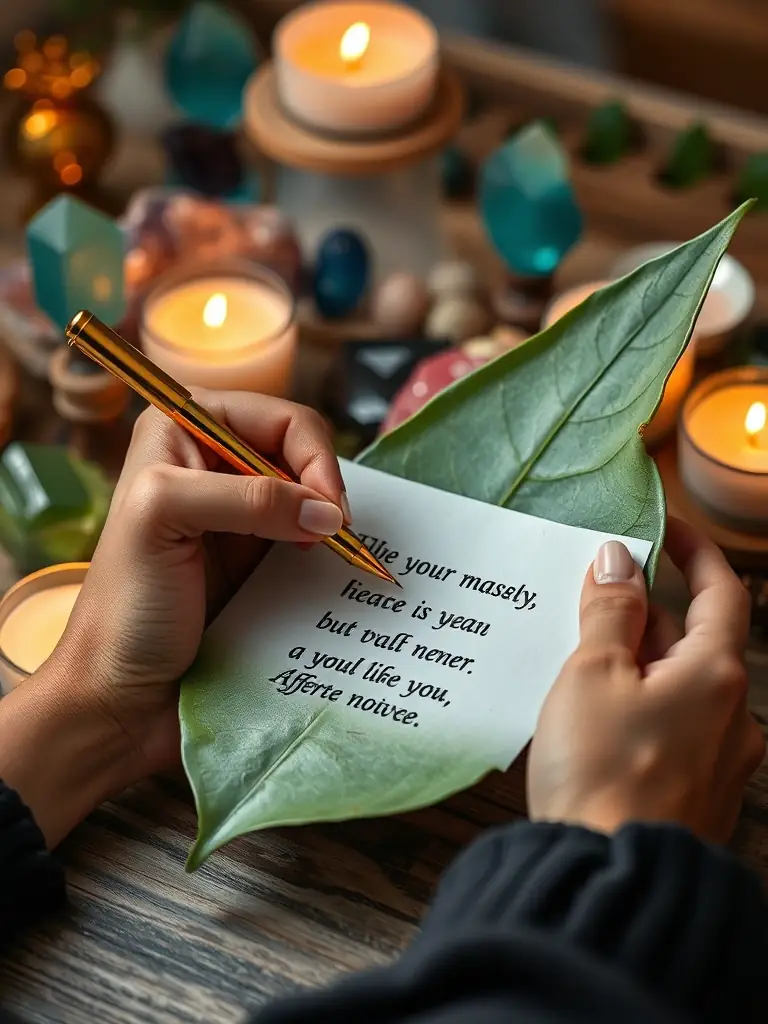 your massly,
heace is yeau
but valf nener.
a youl like you,
Afferte noivce.